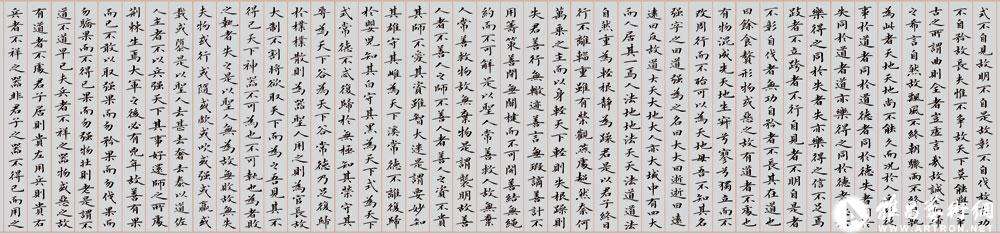 式不自見故明不自是故彰不自伐故功
不自矜故長夫惟不爭故天下莫能與爭
古之所謂曲則全者豈虛言哉故誠全而歸
之希言自然故飄風不終朝驟雨不終日孰
為此者天地天地尚不能久而況於人乎故從
事於道者道者同於道德者同於德失者同於
失同於道者道亦樂得之同於德者德亦
樂得之同於失者失亦樂得之信不足焉
跂者不立跨者不行自見者不明自是者
不彰自伐者無功自矜者不長其在道也
曰餘食贅形物或惡之故有道者不處也
有物混成先天地生寂兮寥兮獨立而不
改周行而不殆可以為天下母吾不知其名
強字之曰道強為之名曰大大曰逝逝曰遠
遠曰反故道大天大地大人亦大域中有四大
而人居其一焉人法地地法天天法道道法
自然重為輕根靜為躁君是以君子終日
行不離輜重雖有榮觀燕處超然奈何
萬乘之主而以身輕天下輕則失根躁則
失君善行無轍迹善言無瑕謫善計不
用籌策善閉無關楗而不可開善結無繩
約而不可解是以聖人常善救人故無棄
人常善救物故無棄物是謂襲明故善
人者不善人之師不善人者善人之資不貴
其師不愛其資雖智大迷是謂要妙知
其雄守其雌為天下溪常德不離復歸
於嬰兒知其白守其黑為天下式為天下
式常德不忒復歸於無極知其榮守其
辱為天下谷為天下谷常德乃足復歸
於樸樸散則為器聖人用之則為官長故
大制不割將欲取天下而為之吾見其不
得已天下神器不可為也不可執也為者敗
之執者失之是以聖人無為故無敗故無失
夫物或行或隨或歔或吹或強或羸或
載或隳是以聖人去甚去奢去泰以道佐
人主者不以兵強天下其事好還師之所處
荊棘生焉大軍之後必有凶年善有果
而已不敢以取強果而勿矜果而勿伐果而
勿驕果而不得已果而勿強物壯則老是謂不
道不道早已夫兵者不祥之器物或惡之故
有道者不處君子居則貴左用兵則貴右
兵者不祥之器非君子之器不得已而用之